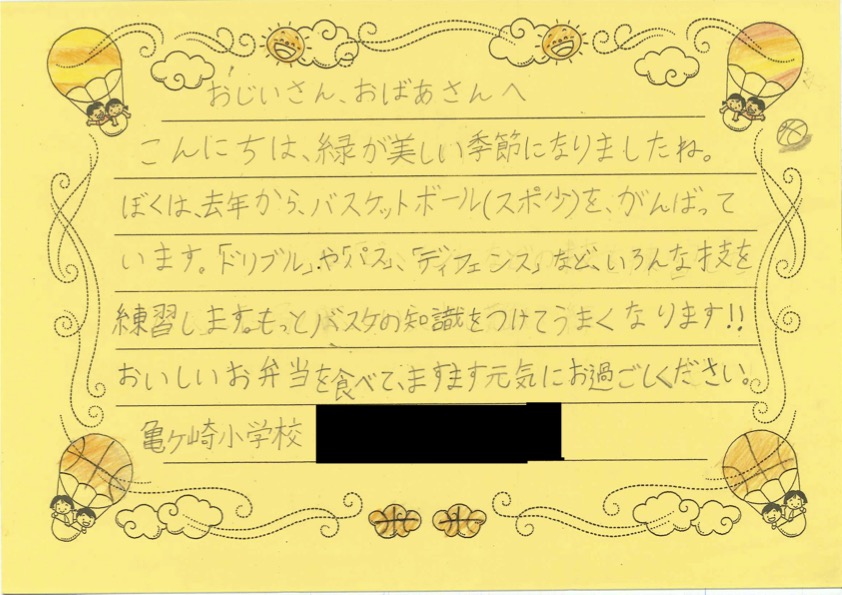 おじいさん、おばあさんへ
こんにちは、緑が美しい季節になりましたね。
ぼくは、去年から、バスケットボール(スポ少)を、がんばって
います。「ドリブル」や「パス」、「ディフェンス」など、いろんな技を
練習します。もっとバスケの知識をつけてうまくなります!!
おいしいお弁当を食べて、ますます元気にお過ごしください。
亀ケ崎小学校